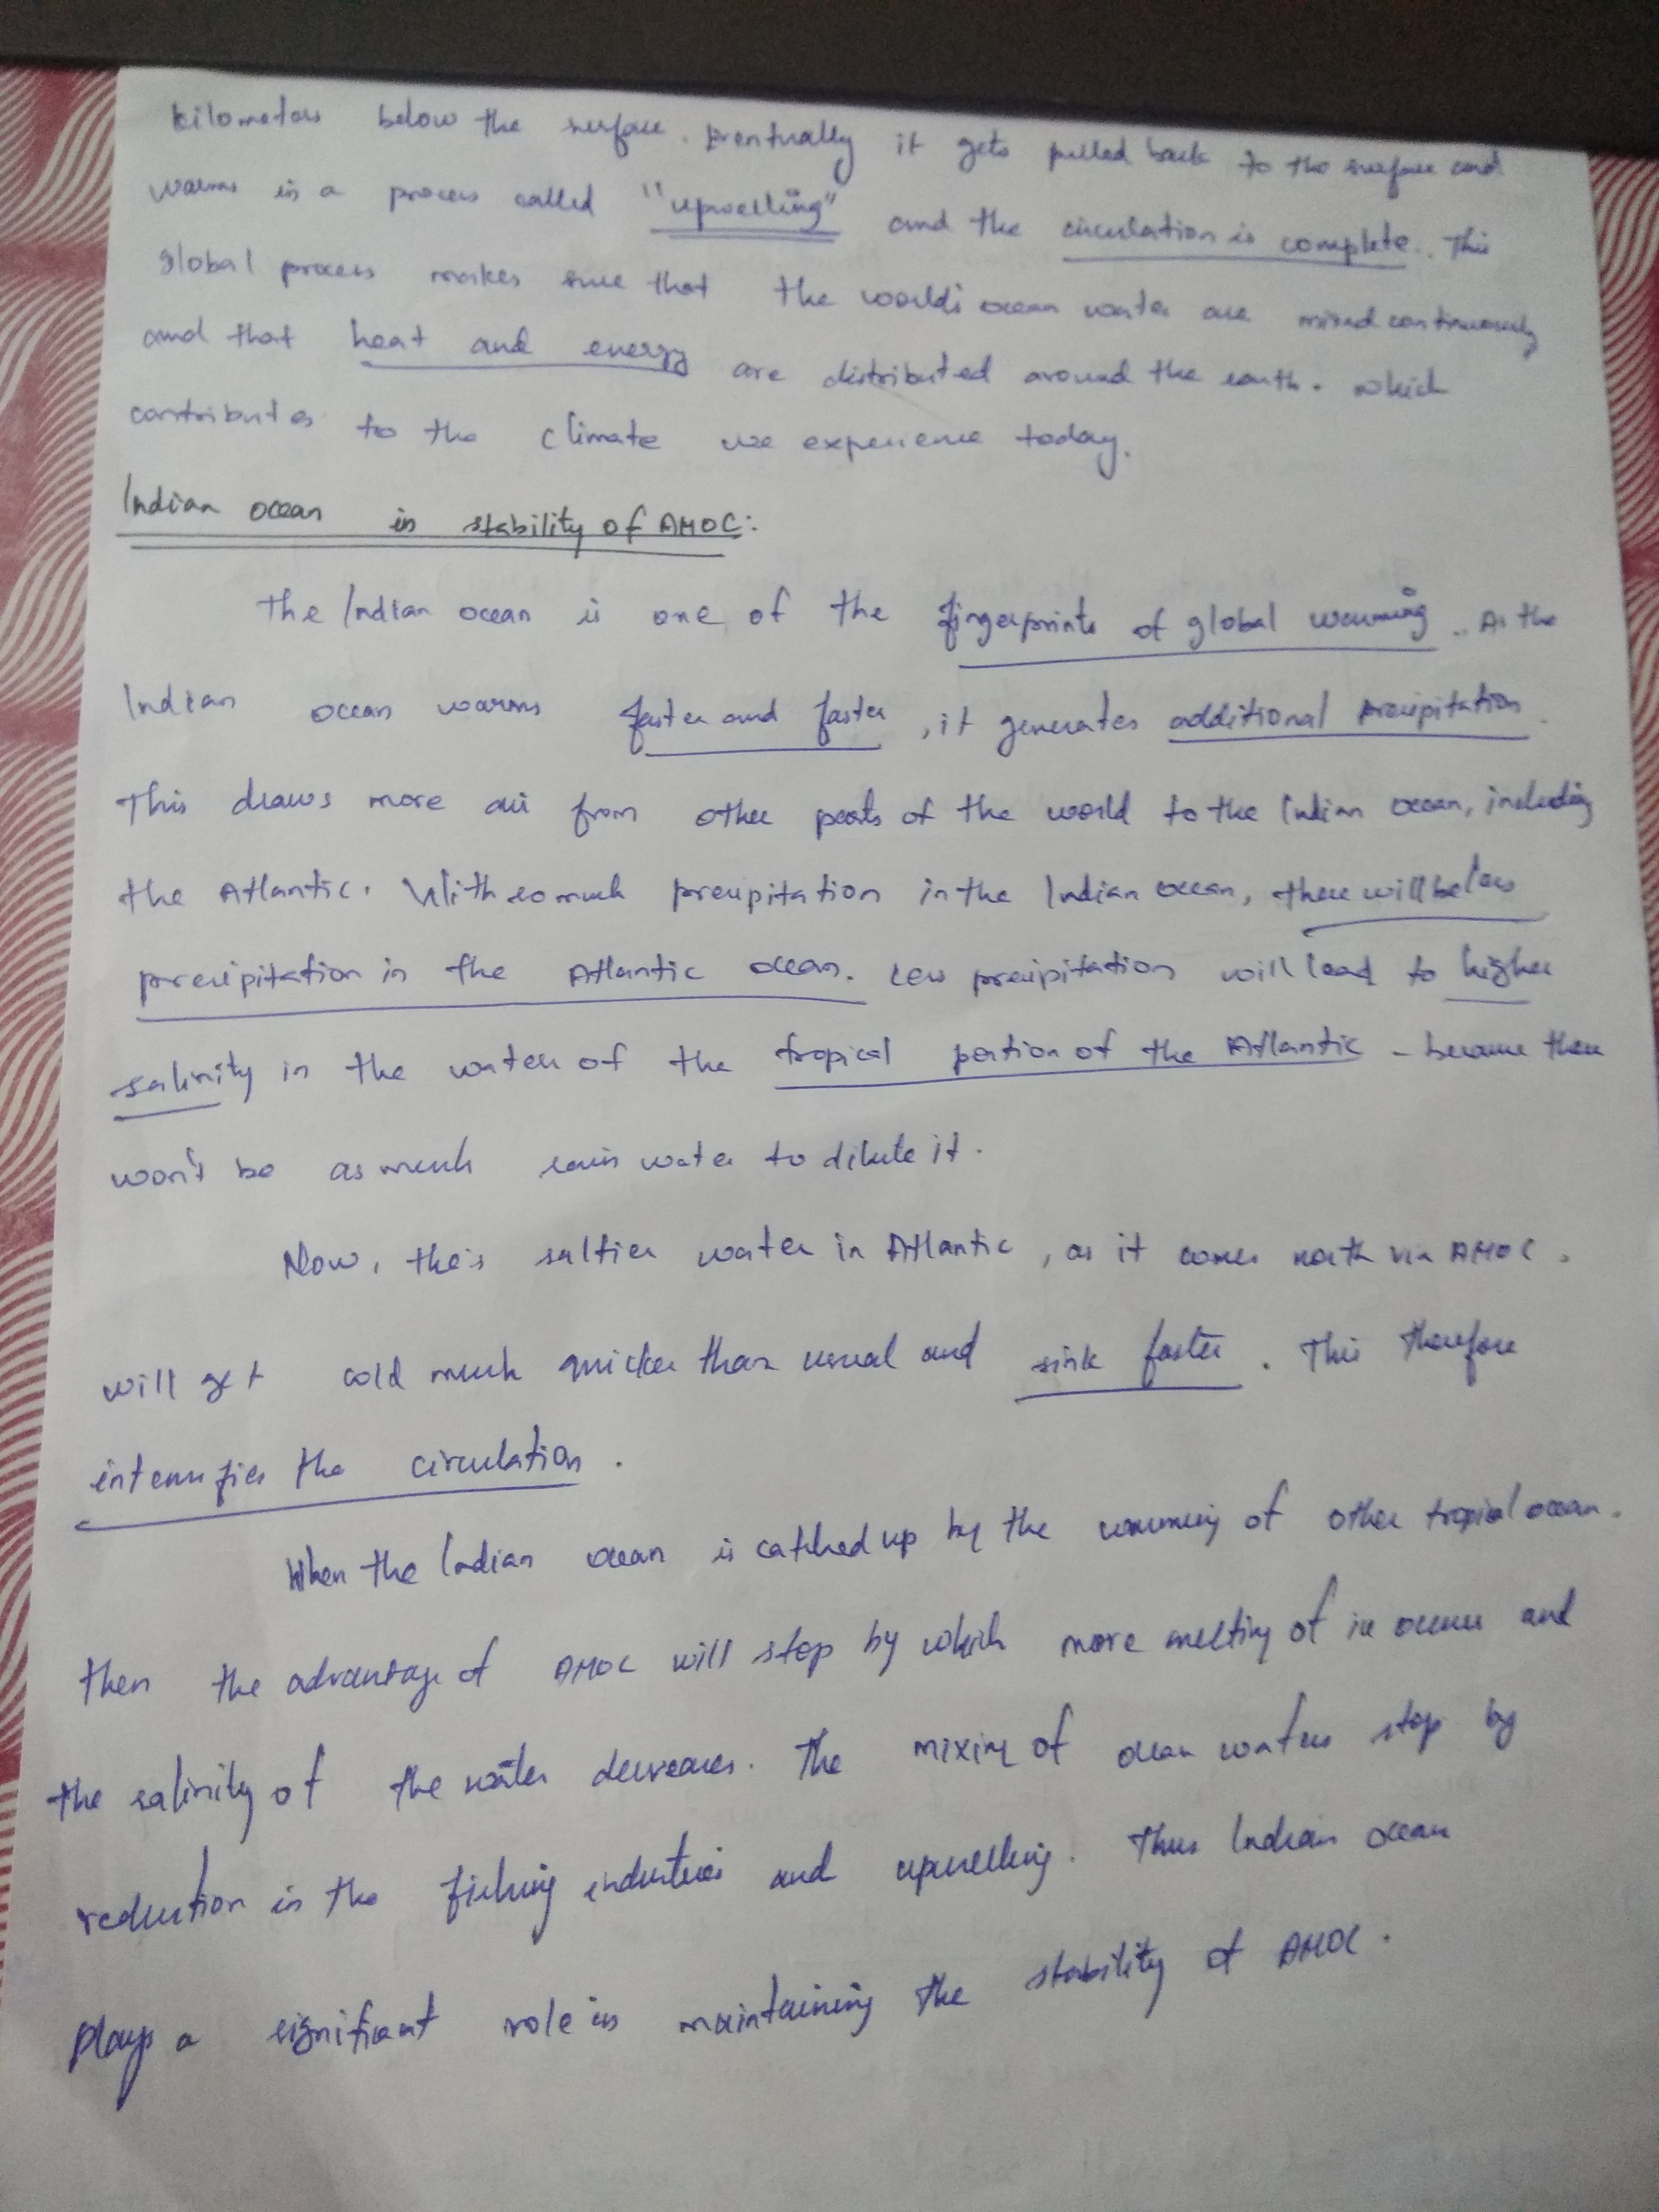 kilometers below the surface. Eventually it gets pulled back to the surface and
warms in a process called "upwelling" and the circulation is complete. This
global process makes sure that the world's ocean water are mixed continuously
and that heat and energy are distributed around the earth. which
contributes to the climate we experience today.
Indian ocean in stability of AMOC:
The Indian ocean is one of the fingerprints of global warming. As the
Indian ocean warms faster and faster, it generates additional precipitation.
This draws more air from other parts of the world to the Indian ocean, including
the Atlantic. With so much precipitation in the Indian ocean, there will be less
precipitation in the Atlantic ocean. Less precipitation will lead to higher
salinity in the water of the tropical portion of the Atlantic - because there
won't be as much rain water to dilute it.
Now, this saltier water in Atlantic, as it comes north via AMOC,
will get cold much quicker than usual and sink faster. This therefore
intensifies the circulation.
When the Indian ocean is catched up by the warming of other tropical ocean.
then the advantage of AMOC will stop by which more melting of ice occurs and
the salinity of the water decreases. The mixing of ocean waters stop by
reduction in the fishing industries and upwelling. Thus Indian ocean
plays a significant role in maintaining the stability of AMOC.